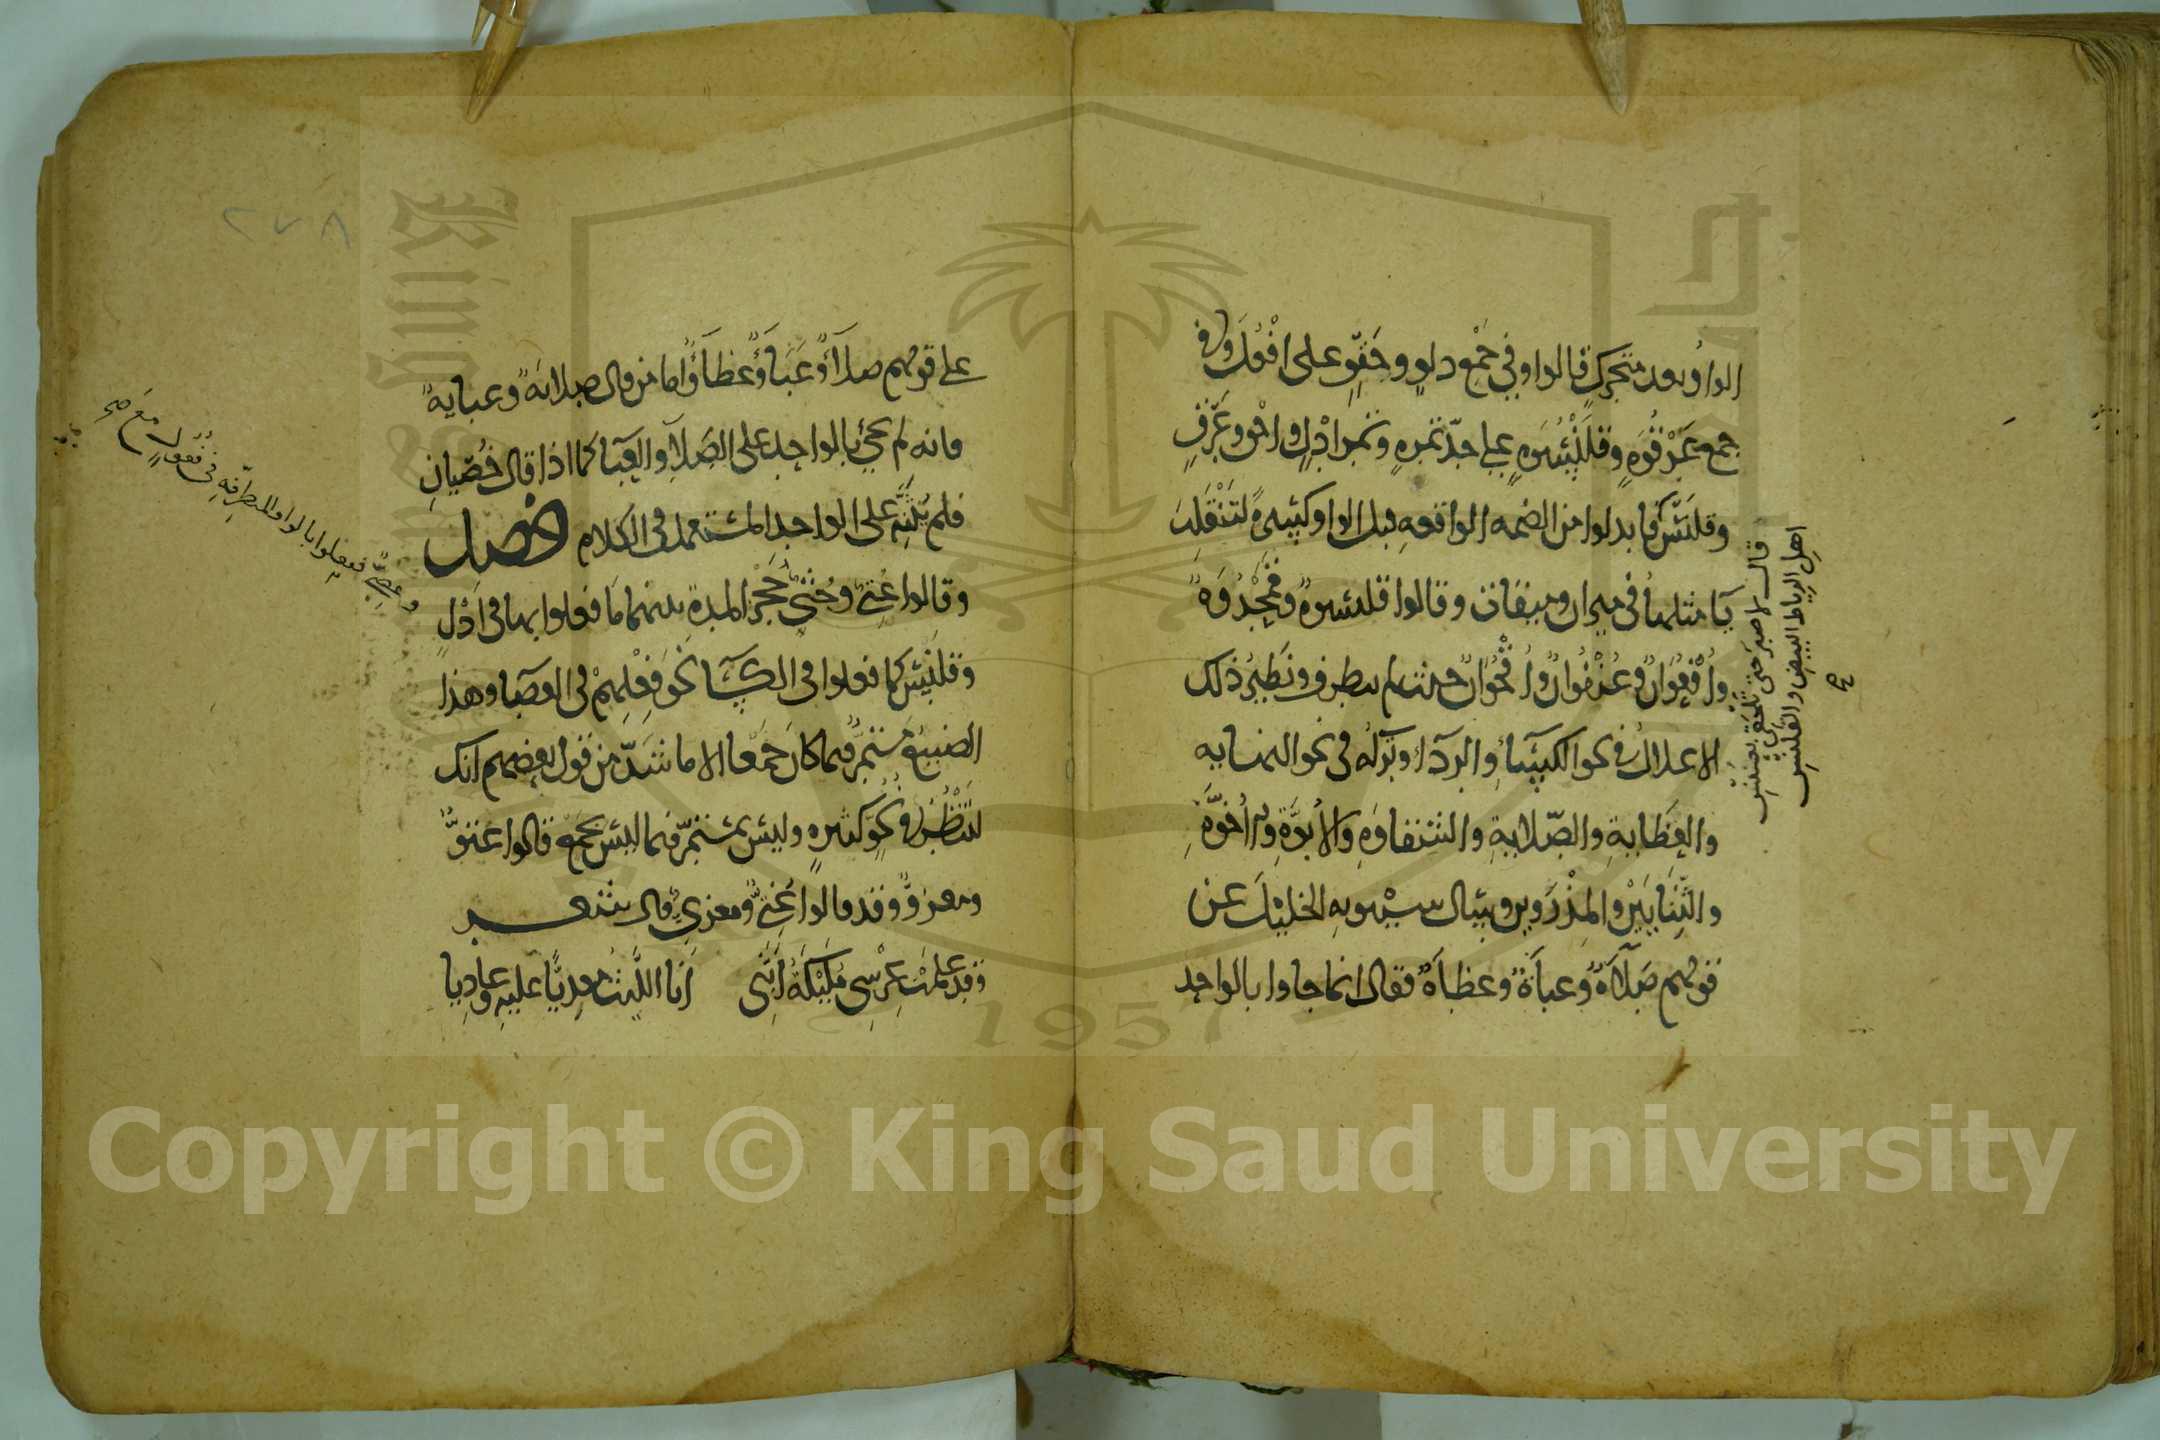 الواو بعد متحرك قالوا في جمع دلو وحقو على افعل وفي
جمع عرقوة وقلنسوة على حد تمرة وتمر ادل واحق وعرق
وقلنس فابدلوا من الضمه الواقعه قبل الواو كسرة لتنقلب
يا مثلها في ميزان وميقات وقالوا قلنسوة وقمحدوة
وافعوان وعنفوان واقحوان حيث لم يتطرف ونظير ذلك
الاعلال في نحو الكساء والرداء وتركه في نحو النهاية
والعظاية والصلاية والشقاوة والابوة والاخوة
والثنايين والمذروين وسال سيبويه الخليل عن
قولهم صلاءة وعباءة وعظاءة فقال انما جاوا بالواحد
قال لا صبر حتى تلحقي بعنس
اهل الرياط البيض والقلنس
على قولهم صلاء وعباء وعظاء واما من قال صلاية وعباية
فانه لم يجئ بالواحد على الصلاء والعباء كما اذا قال خصيان
فلم يثنه على الواحد المستعمل في الكلام فصل
وقالوا عتي وجثي
ففعلوا بالواو المتطرفه في فعول مع حجز المدة بينهما ما فعلوا بها في ادل
وقلنس كما فعلوا في الكساء نحو فعلهم في العصا وهذا
الصنيع مستمر فيما كان جمعا الا ما شذ من قول بعضهم انك
لتنظر في نحو كثيرة وليس بمستمر فيما ليس بجمع قالوا عتو
ومغزو وقد قالوا عتي ومغزي قال شعر
وقد علمت عرسي مليكة انني انا الليث معديا عليه وعاديا
٢٧٨
Copyright © King Saud University
King Saud
1957